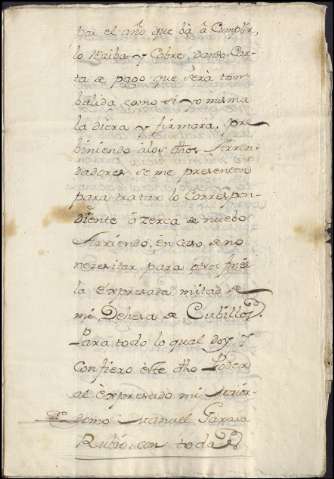 por el año que bà à Cumplir,
lo reciba y Cobre, dando Car
ta de pago que serà tan
balida como si yo misma
la diera y firmara, pre
biniendo a los dhos Arren
dadores se me presenten
para tratar lo Correspon
diente àzerca de nuebo
Arriendo, en caso de no
necesitar para
la expresada mitad de
mi Dehesa de Cubillos.
Para todo lo qual doy, y
Confiero este dho Poder
al expresado mi
domo Manuel Garcia
Rubio, con toda